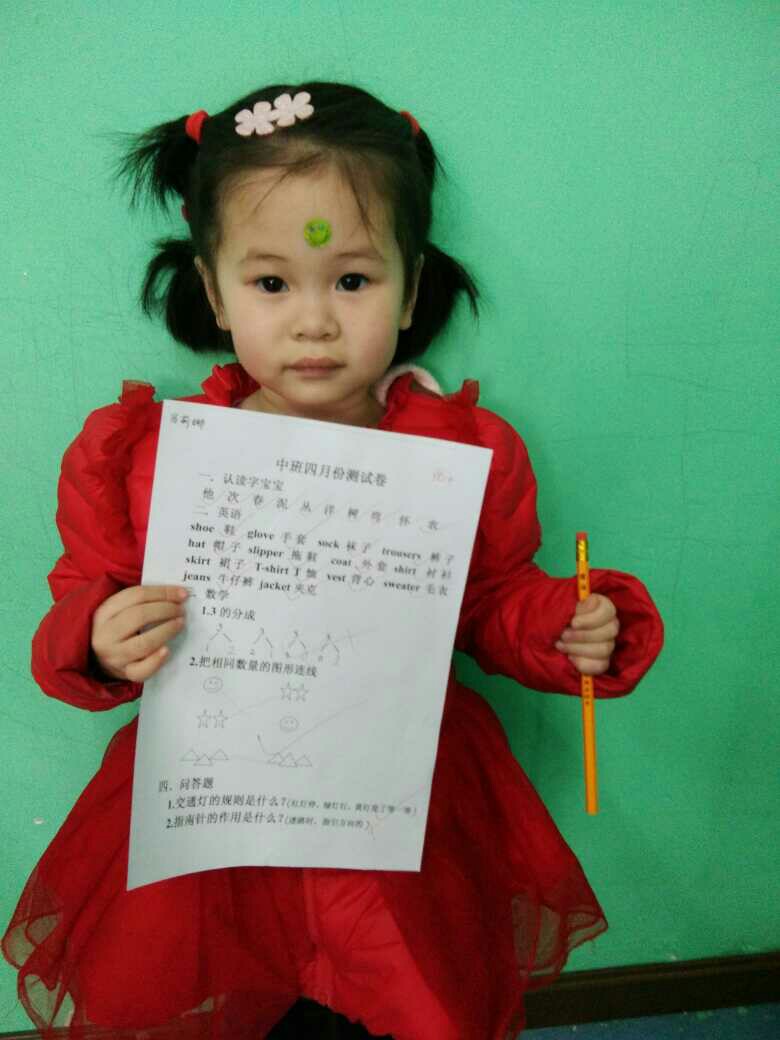 中班四月份测试卷
一、认读字宝宝
他 次 春 泥 从 洋 树 弯 怀 衣
二、英语
shoe 鞋 glove 手套 sock 袜子 trousers 裤子
hat 帽子 slipper 拖鞋 coat 外套 shirt 衬衫
skirt 裙子 T-shirt T恤 vest 背心 sweater 毛衣
jeans 牛仔裤 jacket 夹克
三、数学
1.3 的分成
3 3 3 3
1 2 2 1
2.把相同数量的图形连线
四、问答题
1.交通灯的规则是什么？(红灯停，绿灯行，黄灯亮了等一等)
2.指南针的作用是什么？(迷路时，指引方向的)